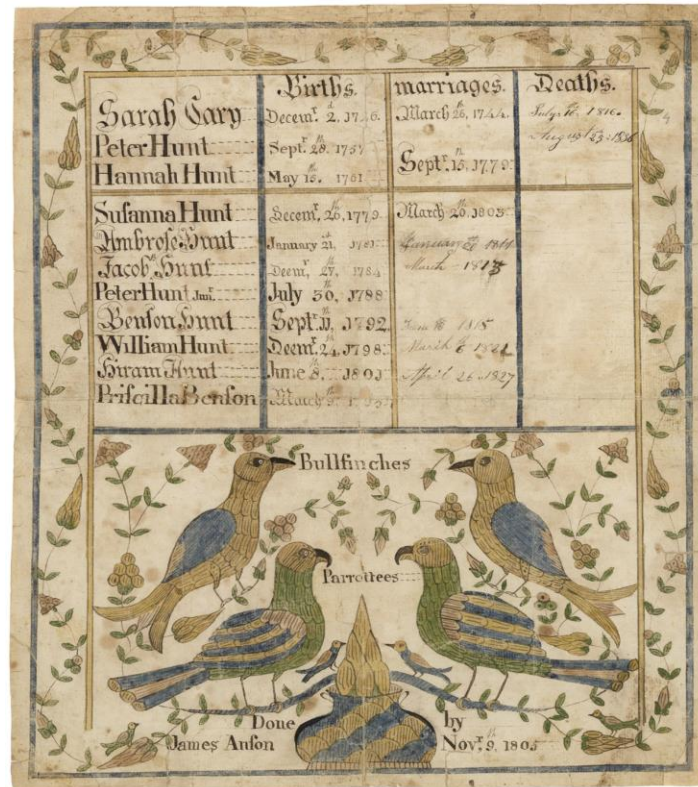 Births. marriages. Deaths.
Sarah Cary Decemr. 2d, 1746. March 26th, 1744. July 1816.
August 23
Peter Hunt Septr. 28th 1757
Septr. 15th, 1779.
Hannah Hunt May 15th. 1761
Susanna Hunt Decemr. 26th, 1779. March 20th. 1803.
Ambrose Hunt January 21st, 1781. January 1811
Jacob Hunt Decmr. 27th, 1784 March 1813
Peter Hunt Junr. July 30th, 1788
Benson Hunt Septr. 11th, 1792. 1815
William Hunt Decmr. 24th, 1798. March 6 1821
Hiram Hunt June 8th. 1801 April 26 1827
Priscilla Benson March
Bullfinches
Parrottees
Done by
James Anson Novr. 9th. 1805